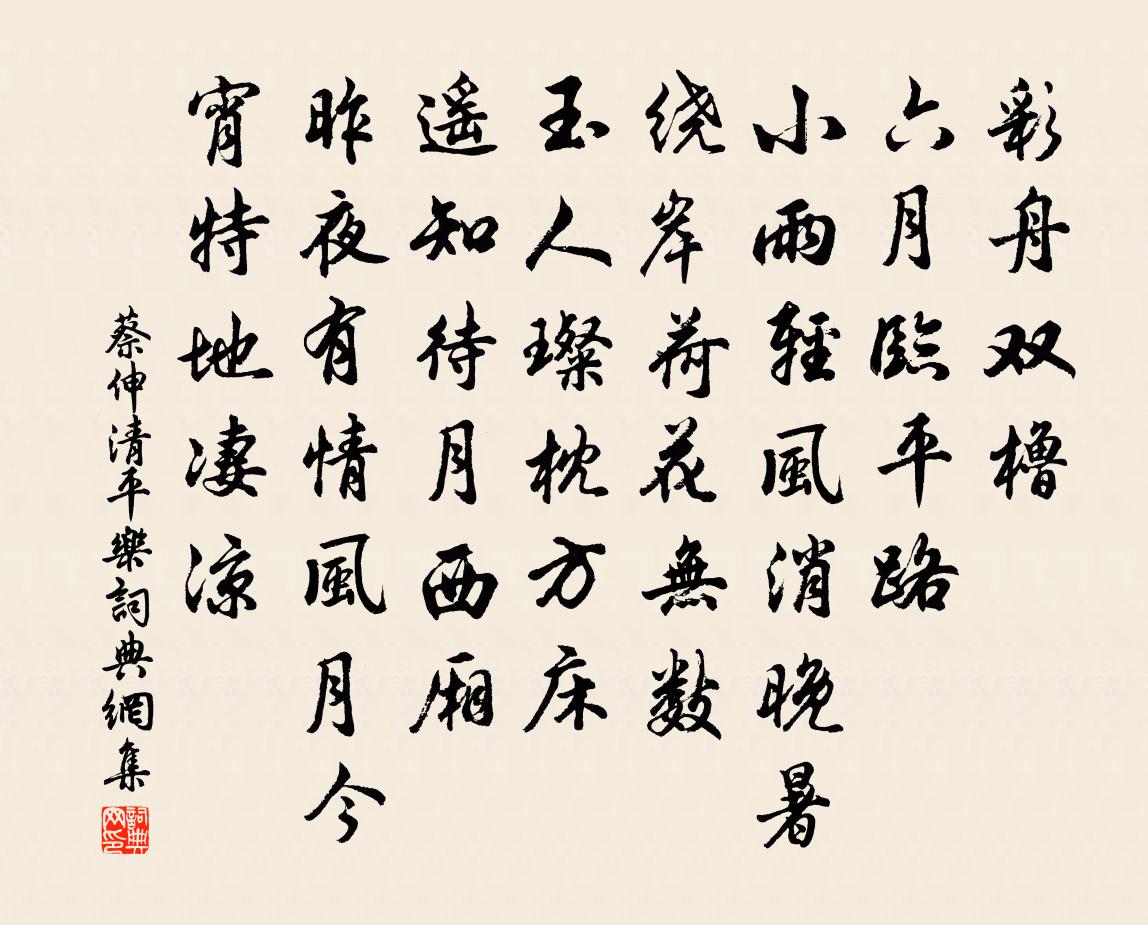 彩舟双櫓
六月臨平路
小雨輕風消晚暑
绕岸荷花無数
玉人璨枕方床
遥知待月西厢
昨夜有情風月今
宵特地凄凉
蔡伸清平樂詞典網集
詞典网印